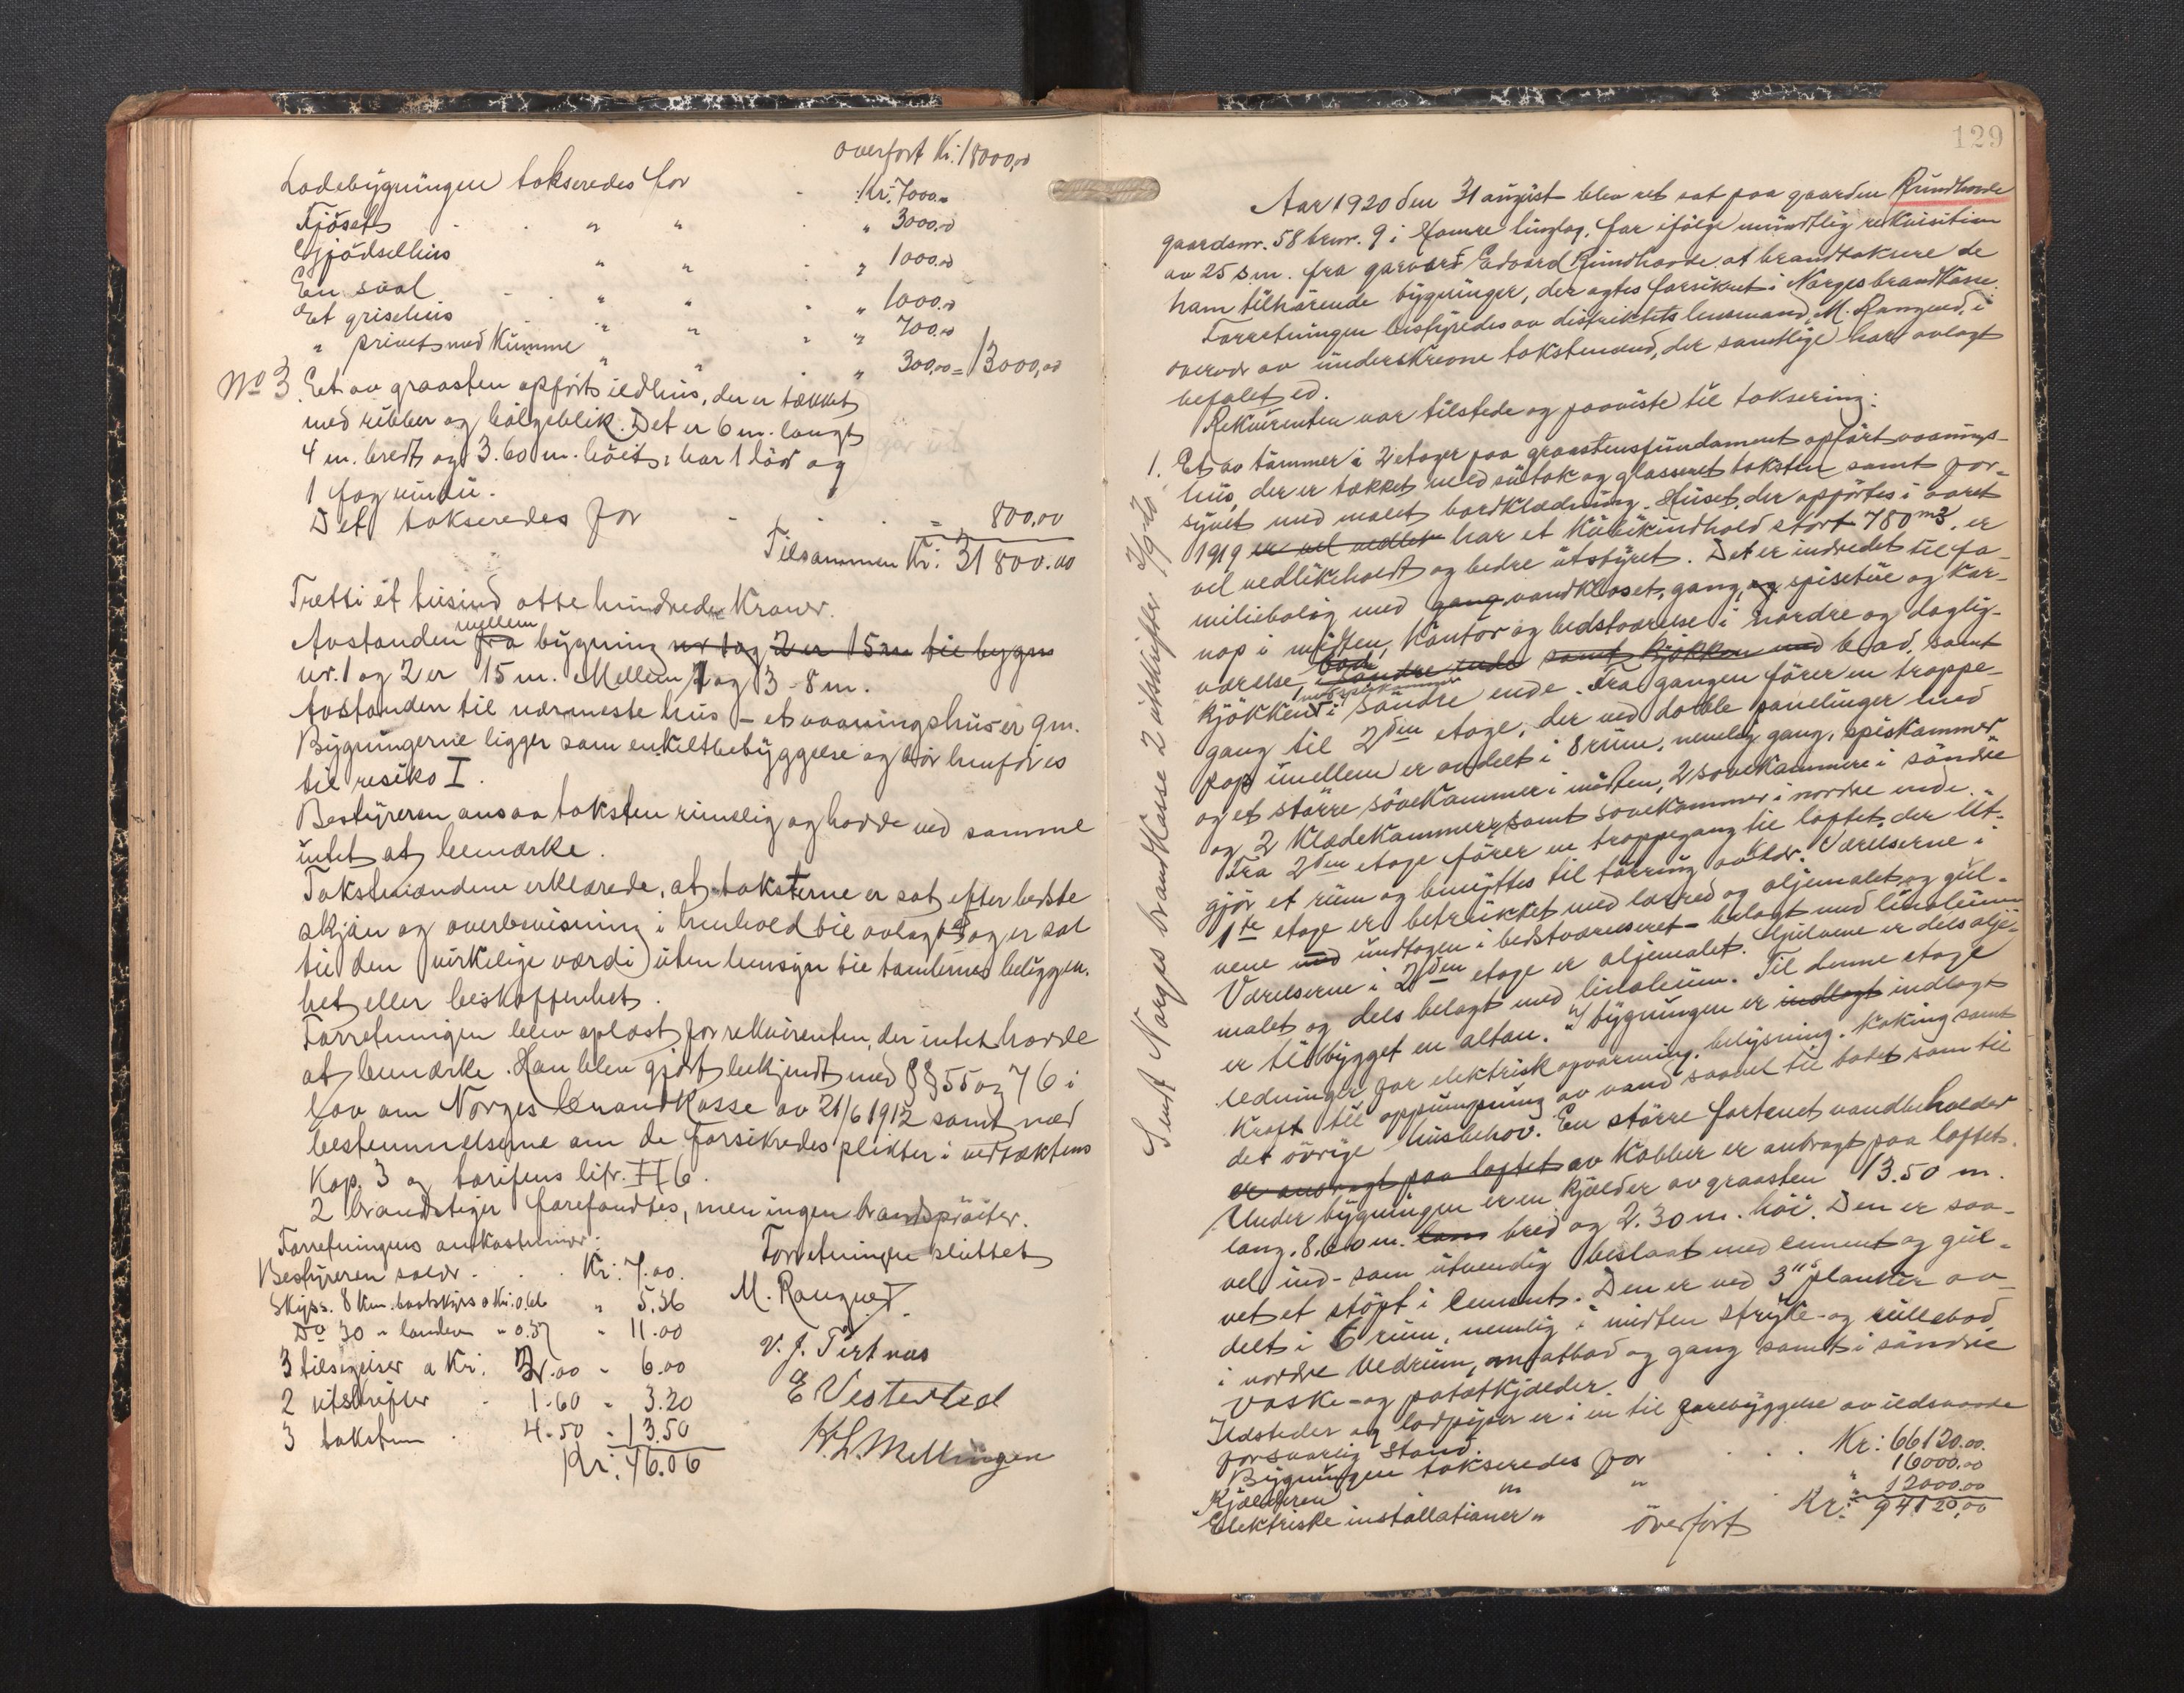 overført Kr: 18000,00
Ladebygningen takseredes for Kr. 7000.00
Fjöset " " " 3000.00
Gjödselhus " " " 1000.00
En sval " " " 1000.00
Et grisehus " " " 700.00
" privet med kumme " " " 300,00 = 13000,00
No 3. Eet av graasten opfört ildhus, der er tækket
med ribber og bölgeblik. Det er 6 m. langt
4 m. bredt og 3.60 m. höit, har 1 dör og
1 fag vindu.
Det takseredes for = 800,00
Tilsammen Kr: 31800.00
Tretti ét tusind otte hundrede Kroner.
mellem
Avstanden fra bygning nr 1 og 2 er 15 m til bygn
nr. 1 og 2 er 15 m. Mellem 1 og 3 - 8 m.
Avstanden til nærmeste hus - et vaaningshus er 9 m.
Bygningerne ligger som enkeltbebyggelse og bör henföres
til resiko I.
Bestyreren ansaa taksten rimelig og havde ved samme
intet at bemærke.
Takstmændene erklærede, at taksterne er sat efter bedste
skjön og overbevisning i henhold til avlagt ed og er sat
til den virkelige værdi uten hensyn til tomternes beliggen-
het eller beskaffenhet.
Forretningen blev oplæst for rekvirenten, der intet havde
at bemærke. Han blev gjort bekjendt med §§ 55 og 76 i
lov om Norges Brandkasse av 21/6 1912 samt med
bestemmelserne om de forsikredes plikter i vedtæktens
Kap. 3 og tarifens litr. II 6.
2 brandstiger forefandtes, men ingen brandspröiter.
Forretningens omkostninger:
Bestyreren salær . . . Kr: 7.00.
Skyss. 8 Km. baatskyss a Kr. 0.66 " 5.36
Do 30 " landev " 0.37 " 11.00
3 tilsigelser a Kr. 2.00 " 6.00
2 utskrifter " 1.60 " 3.20
3 takstm . 4.50 " 13.50
Kr: 46.06
Forretningen sluttet
M. Rongved.
V. J. Tirtnæs
E Vesterted
K. L. Mellingen
129
Aar 1920 den 31 august blev ret sat paa gaarden Rundhovde
gaardsnr. 58 brnr. 9 i Hamre tinglag, for ifölge mundtlig rekvisition
av 25 s.m. fra Edvard Rundhovde at brandtaksere de
ham tilhörende bygninger, der agtes forsikret i Norges brandkasse.
Forretningen bestyredes av distriktets lensmand, M. Rongved, i
overvær av underskrevne takstmænd, der samtlige har avlagt
befalet ed.
Rekvirenten var tilstede og paaviste til taksering:
1. Et av tömmer i 2 etager paa graastensfundament opfört vaanings-
hus, der er tækket med sutak og glasseret taksten samt for-
synet med malet bordklædning. Huset, der opförtes i aaret
1919 er vel vedlik har et Kubikindhold stort 780 m3, er
vel vedlikeholdt og bedre utstyret. Det er indredet til fa-
miliebolig med gang, vandkloset, gang, og spisestue og kor-
nap i midten, kontor og bedstværelse i nordre og daglig-
værelse, i söndre ende samt kjökken med bad, samt
kjökken i söndre ende. Fra gangen förer en trappe-
gang til 2den etage, der ved doble panelinger med
pap imellem er avdelt i 8 rum, nemlig gang, spiskammer
og et större sövekammer i midten, 2 sovekammere i söndre
og 2 Klædekammere, samt sovekammer i nordre ende.
Fra 2den etage förer en trappegang til loftet, der ut-
gjör et rum og benyttes til törring av klær. Værelserne i
1te etage er betrukket med lærred og oljemalet og gul-
vene med undtagen i bedstværelset - belagt med linoleum
Værelserne i 2den etage er oljemalet. Gulvene er dels olje-
malet og dels belagt med linoleum. Til denne etage
er tilbygget en altan. I bygningen er indlagt indlagt
ledninger for elektrisk opvarming, belysning, Koking samt
Kraft til oppumpning av vand saavel til badet som til
det övrige husbehov. En större fortinnet vandbeholder
er anbragt paa loftet av Kobber er anbragt paa loftet.
Under bygningen er en kjælder av graasten 13.50 m.
lang, 8.00 m. lang bred og 2.30 m. höi. Den er saa-
vel ind- som utvendig beslaat med cement og gul-
vet et stöpt i cement. Den er ved 3" planker av-
delt i 6 rum, nemlig i midten stryke- og rullebod
i nordre vedrum, matbod og gang samt i söndre
vaske- og potetkjælder.
Ildsteder og lodpiper er i en til forebyggelse av ildsvaade
forsvarlig stand.
Bygningen takseredes for . . . Kr: 66120.00.
Kjælderen " " " 16000.00
Elektriske installationer " " 12000.00
överfört Kr: 94120,00
Sendt Norges brandkasse 2 utskrifter